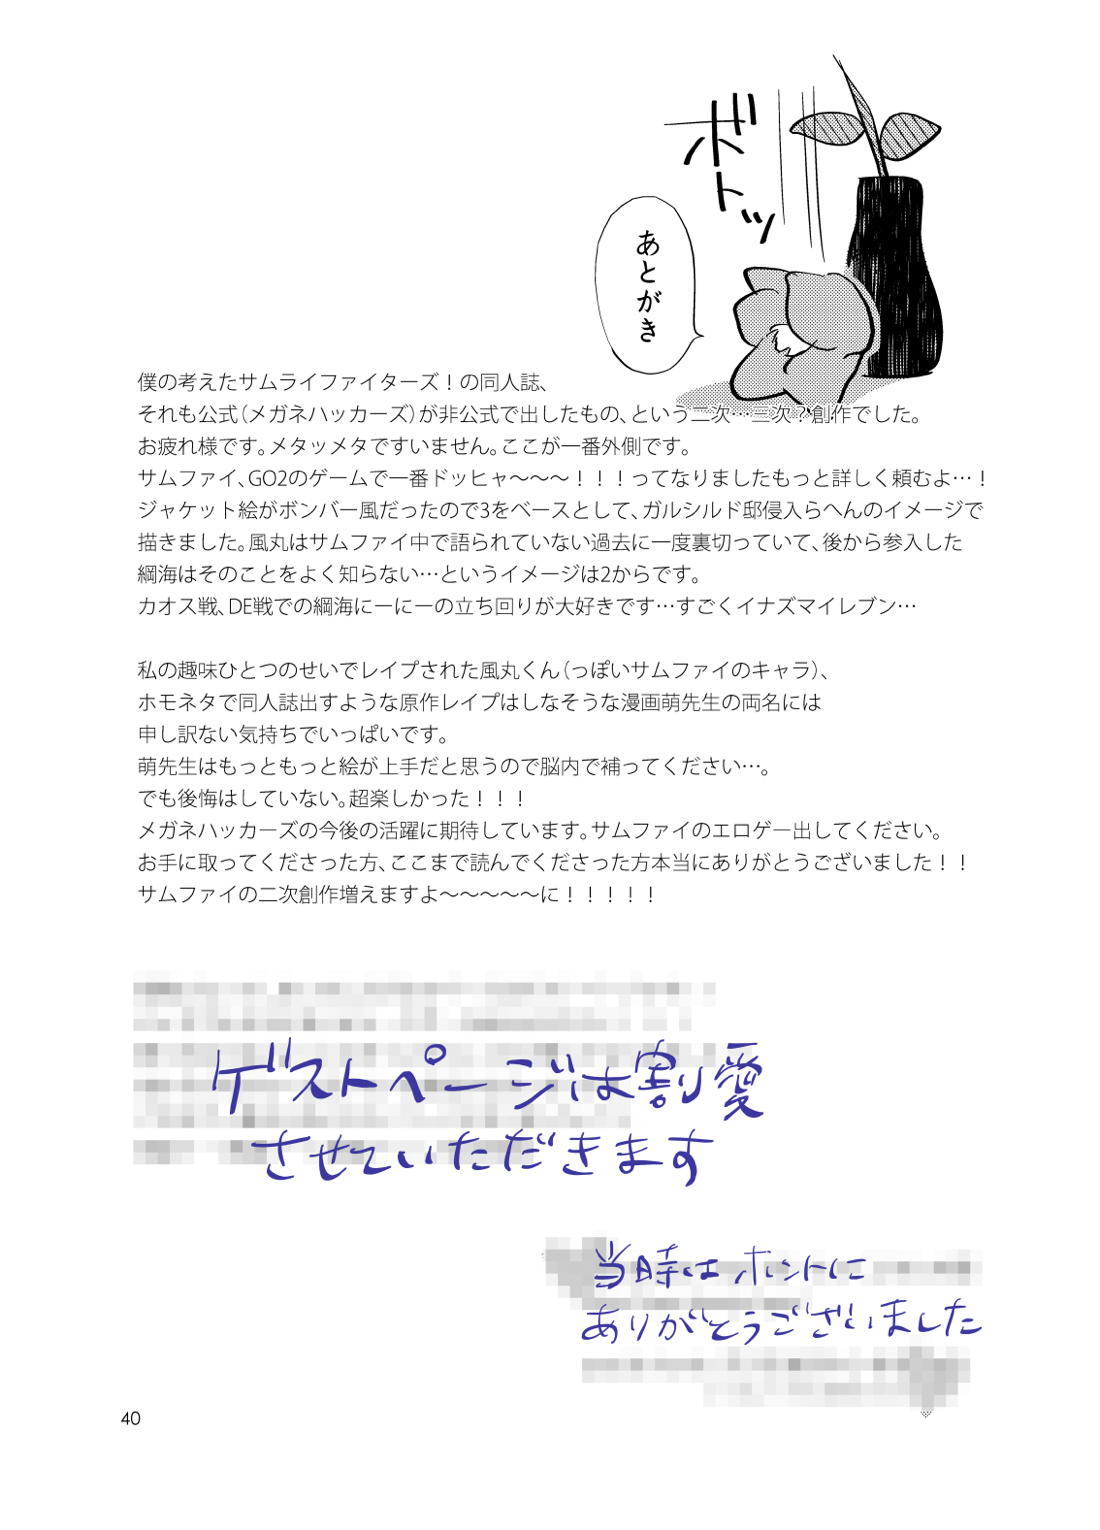 ボトッ
あとがき
僕の考えたサムライファイターズ！の同人誌、
それも公式(メガネハッカーズ)が非公式で出したもの、という二次…三次？創作でした。
お疲れ様です。メタッメタですいません。ここが一番外側です。
サムファイ、GO2のゲームで一番ドッヒャ～～～！！！ってなりましたもっと詳しく頼むよ…！
ジャケット絵がボンバー風だったので3をベースとして、ガルシルド邸侵入らへんのイメージで
描きました。風丸はサムファイ中で語られていない過去に一度裏切っていて、後から参入した
綱海はそのことをよく知らない…というイメージは2からです。
カオス戦、DE戦での綱海にーにーの立ち回りが大好きです…すごくイナズマイレブン…
私の趣味ひとつのせいでレイプされた風丸くん(っぽいサムファイのキャラ)、
ホモネタで同人誌出すような原作レイプはしなそうな漫画萌先生の両名には
申し訳ない気持ちでいっぱいです。
萌先生はもっともっと絵が上手だと思うので脳内で補ってください…。
でも後悔はしていない。超楽しかった！！！
メガネハッカーズの今後の活躍に期待しています。サムファイのエロゲー出してください。
お手に取ってくださった方、ここまで読んでくださった方本当にありがとうございました！！
サムファイの二次創作増えますよ～～～～～に！！！！！
ゲストページは割り愛
させていただきます
当時はホントに
ありがとうございました
40